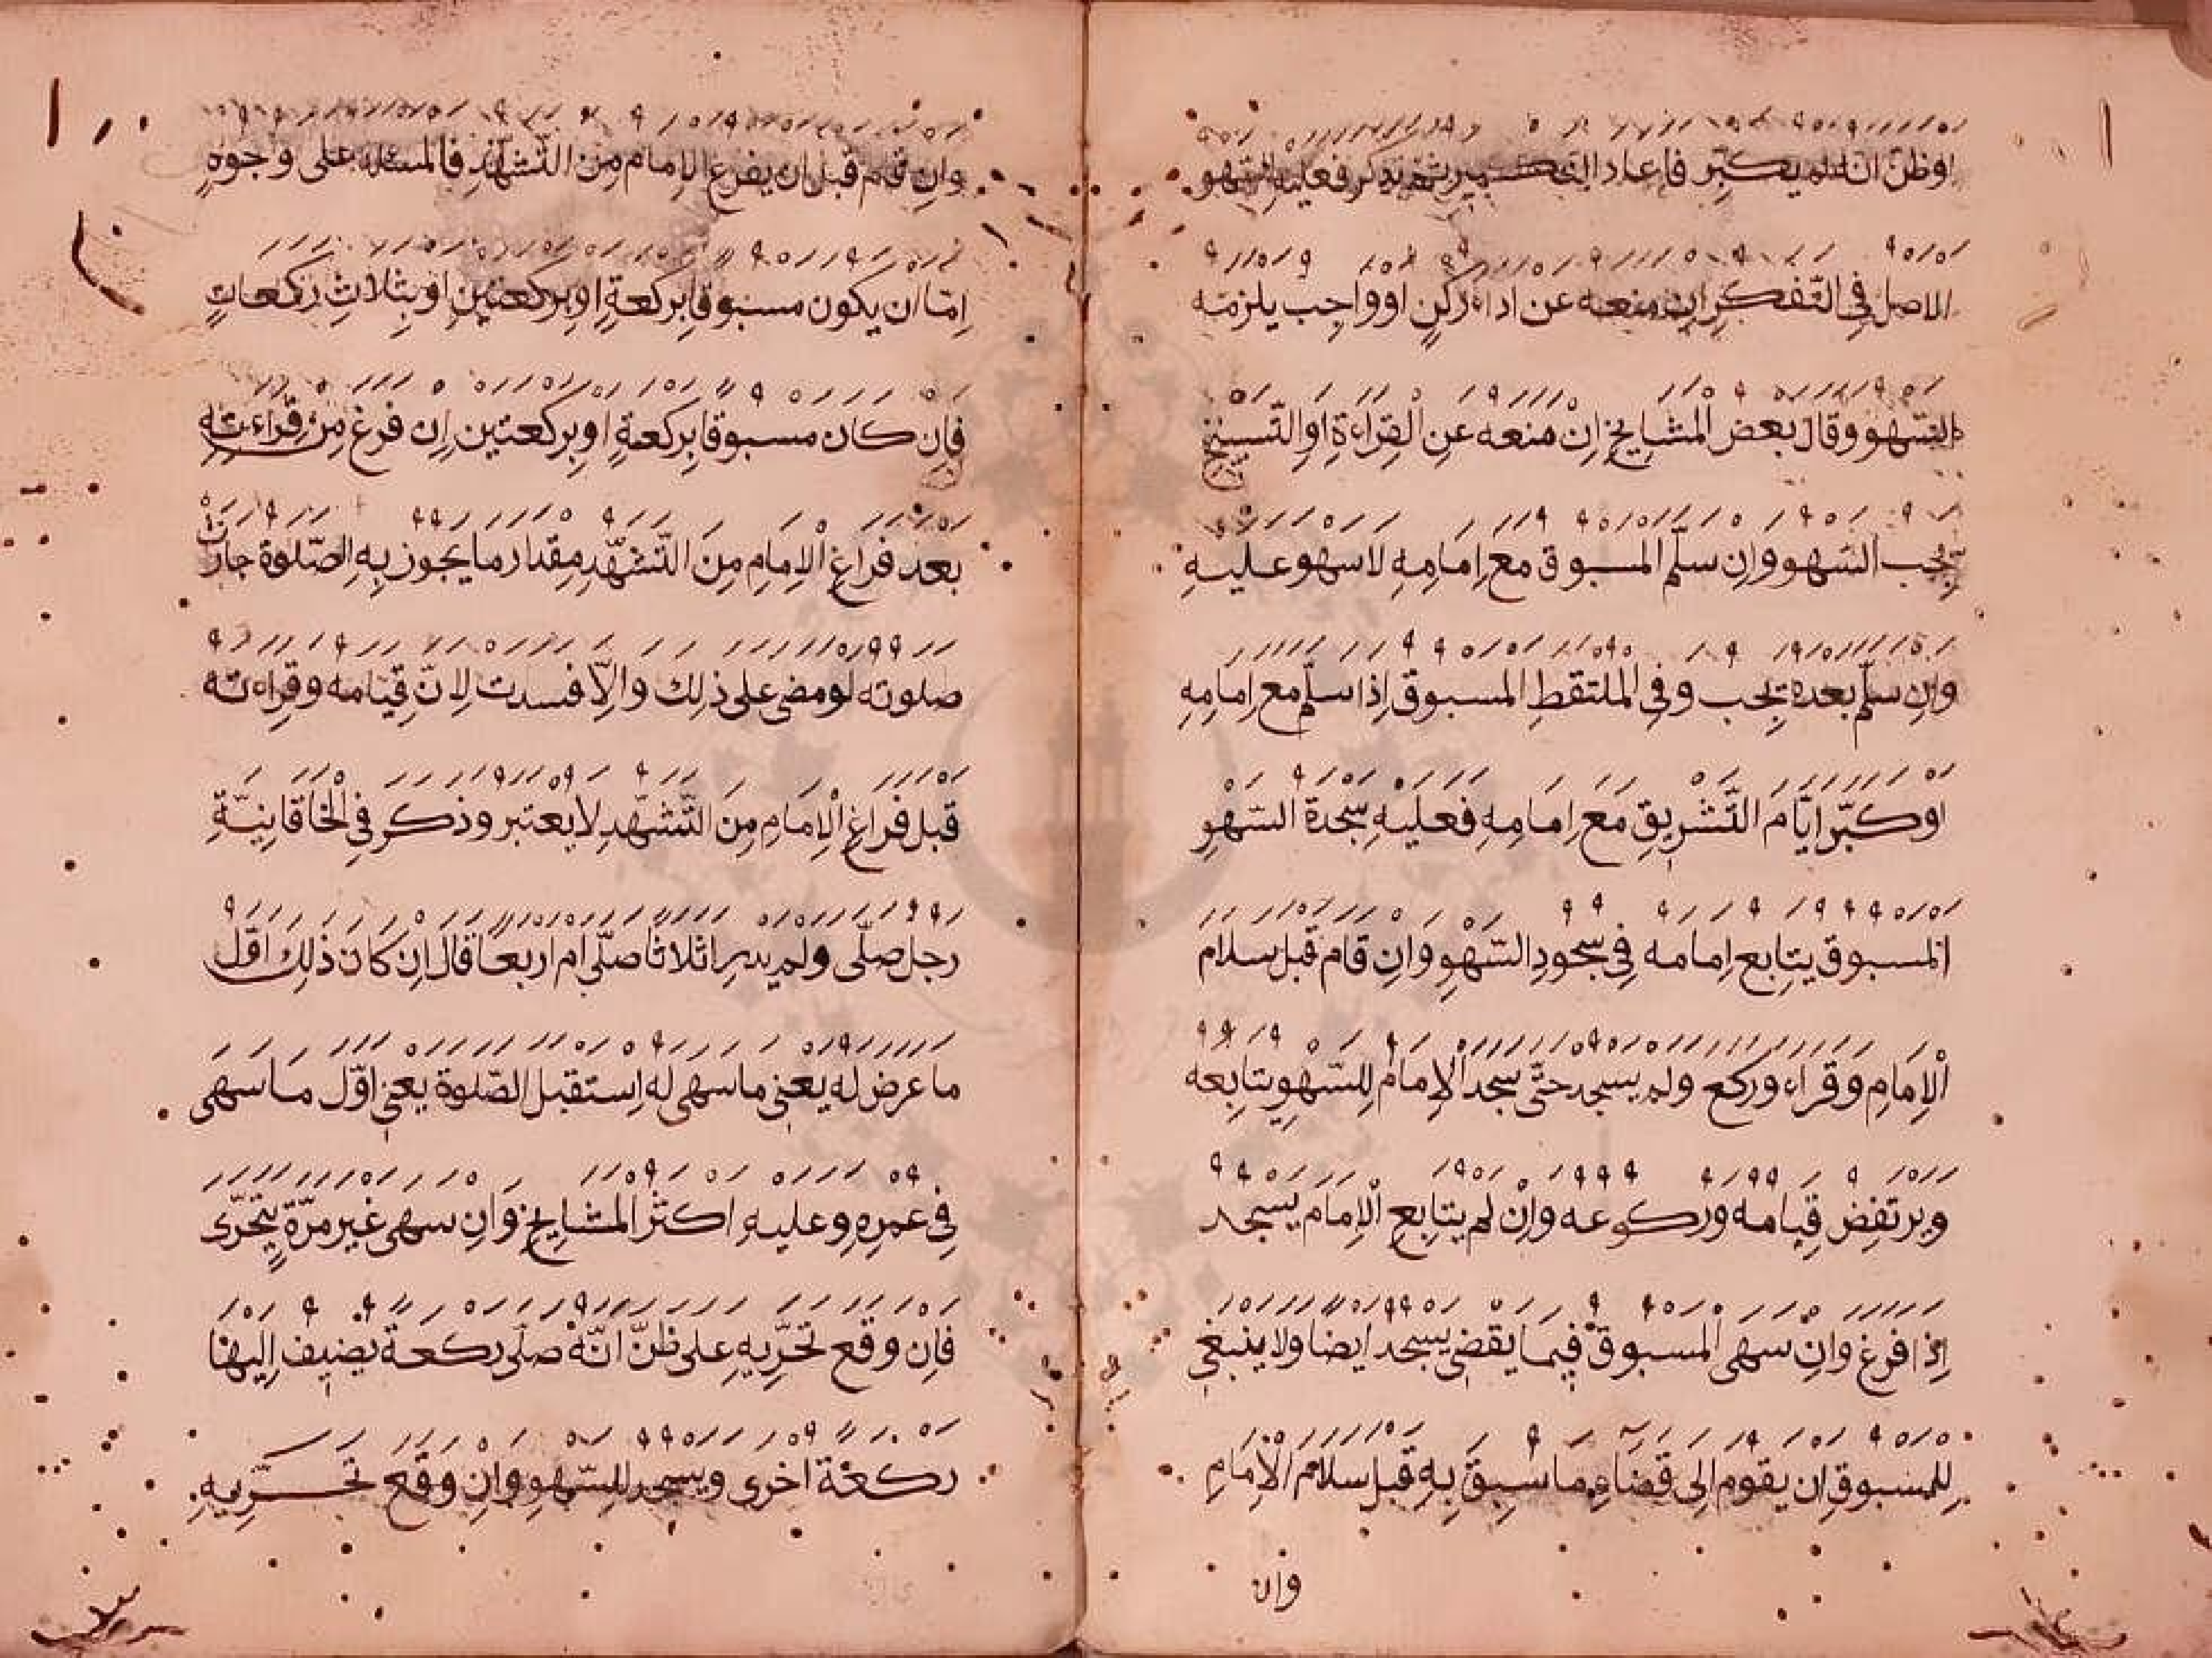 اوظن انه لم يكبر فاعاد التكبير ثم تذكر فعليه السهو
الاصل في التفكر ان منعه عن اداء ركن او واجب يلزمه
السهو وقال بعض المشايخ ان منعه عن القراءة او التسبيح
يجب السهو وان سلم المسبوق مع امامه لا سهو عليه
وان سلم بعده يجب وفي الملتقط المسبوق اذا سلم مع امامه
او كبر ايام التشريق مع امامه فعليه سجدة السهو
المسبوق يتابع امامه في سجود السهو وان قام قبل سلام
الامام وقراء وركع ولم يسجد حتى سجد الامام للسهو يتابعه
ويرتفض قيامه وركوعه وان لم يتابع الامام يسجد
اذا فرغ وان سهى المسبوق فيما يقضي يسجد ايضا ولا ينبغي
للمسبوق ان يقوم الى قضاء ما سبق به قبل سلام الامام
وان
وان قام قبل ان يفرغ الامام من التشهد فالمسئلة على وجوه
اما ان يكون مسبوقا بركعة او بركعتين او بثلاث ركعات
فان كان مسبوقا بركعة او بركعتين ان فرغ من قراءته
بعد فراغ الامام من التشهد مقدار ما يجوز به الصلوة جازت
صلوته لو مضى على ذلك والا فسدت لان قيامه وقراءته
قبل فراغ الامام من التشهد لا يعتبر وذكر في الخاقانية
رجل صلى ولم يدر اثلاثا صلى ام اربعا قال ان كان ذلك اول
ما عرض له يعني ما سهى له استقبل الصلوة يعني اول ما سهى
في عمره وعليه اكثر المشايخ وان سهى غير مرة يتحرى
فان وقع تحريه على ظن انه صلى ركعة يضيف اليها
ركعة اخرى ويسجد للسهو وان وقع تحريه